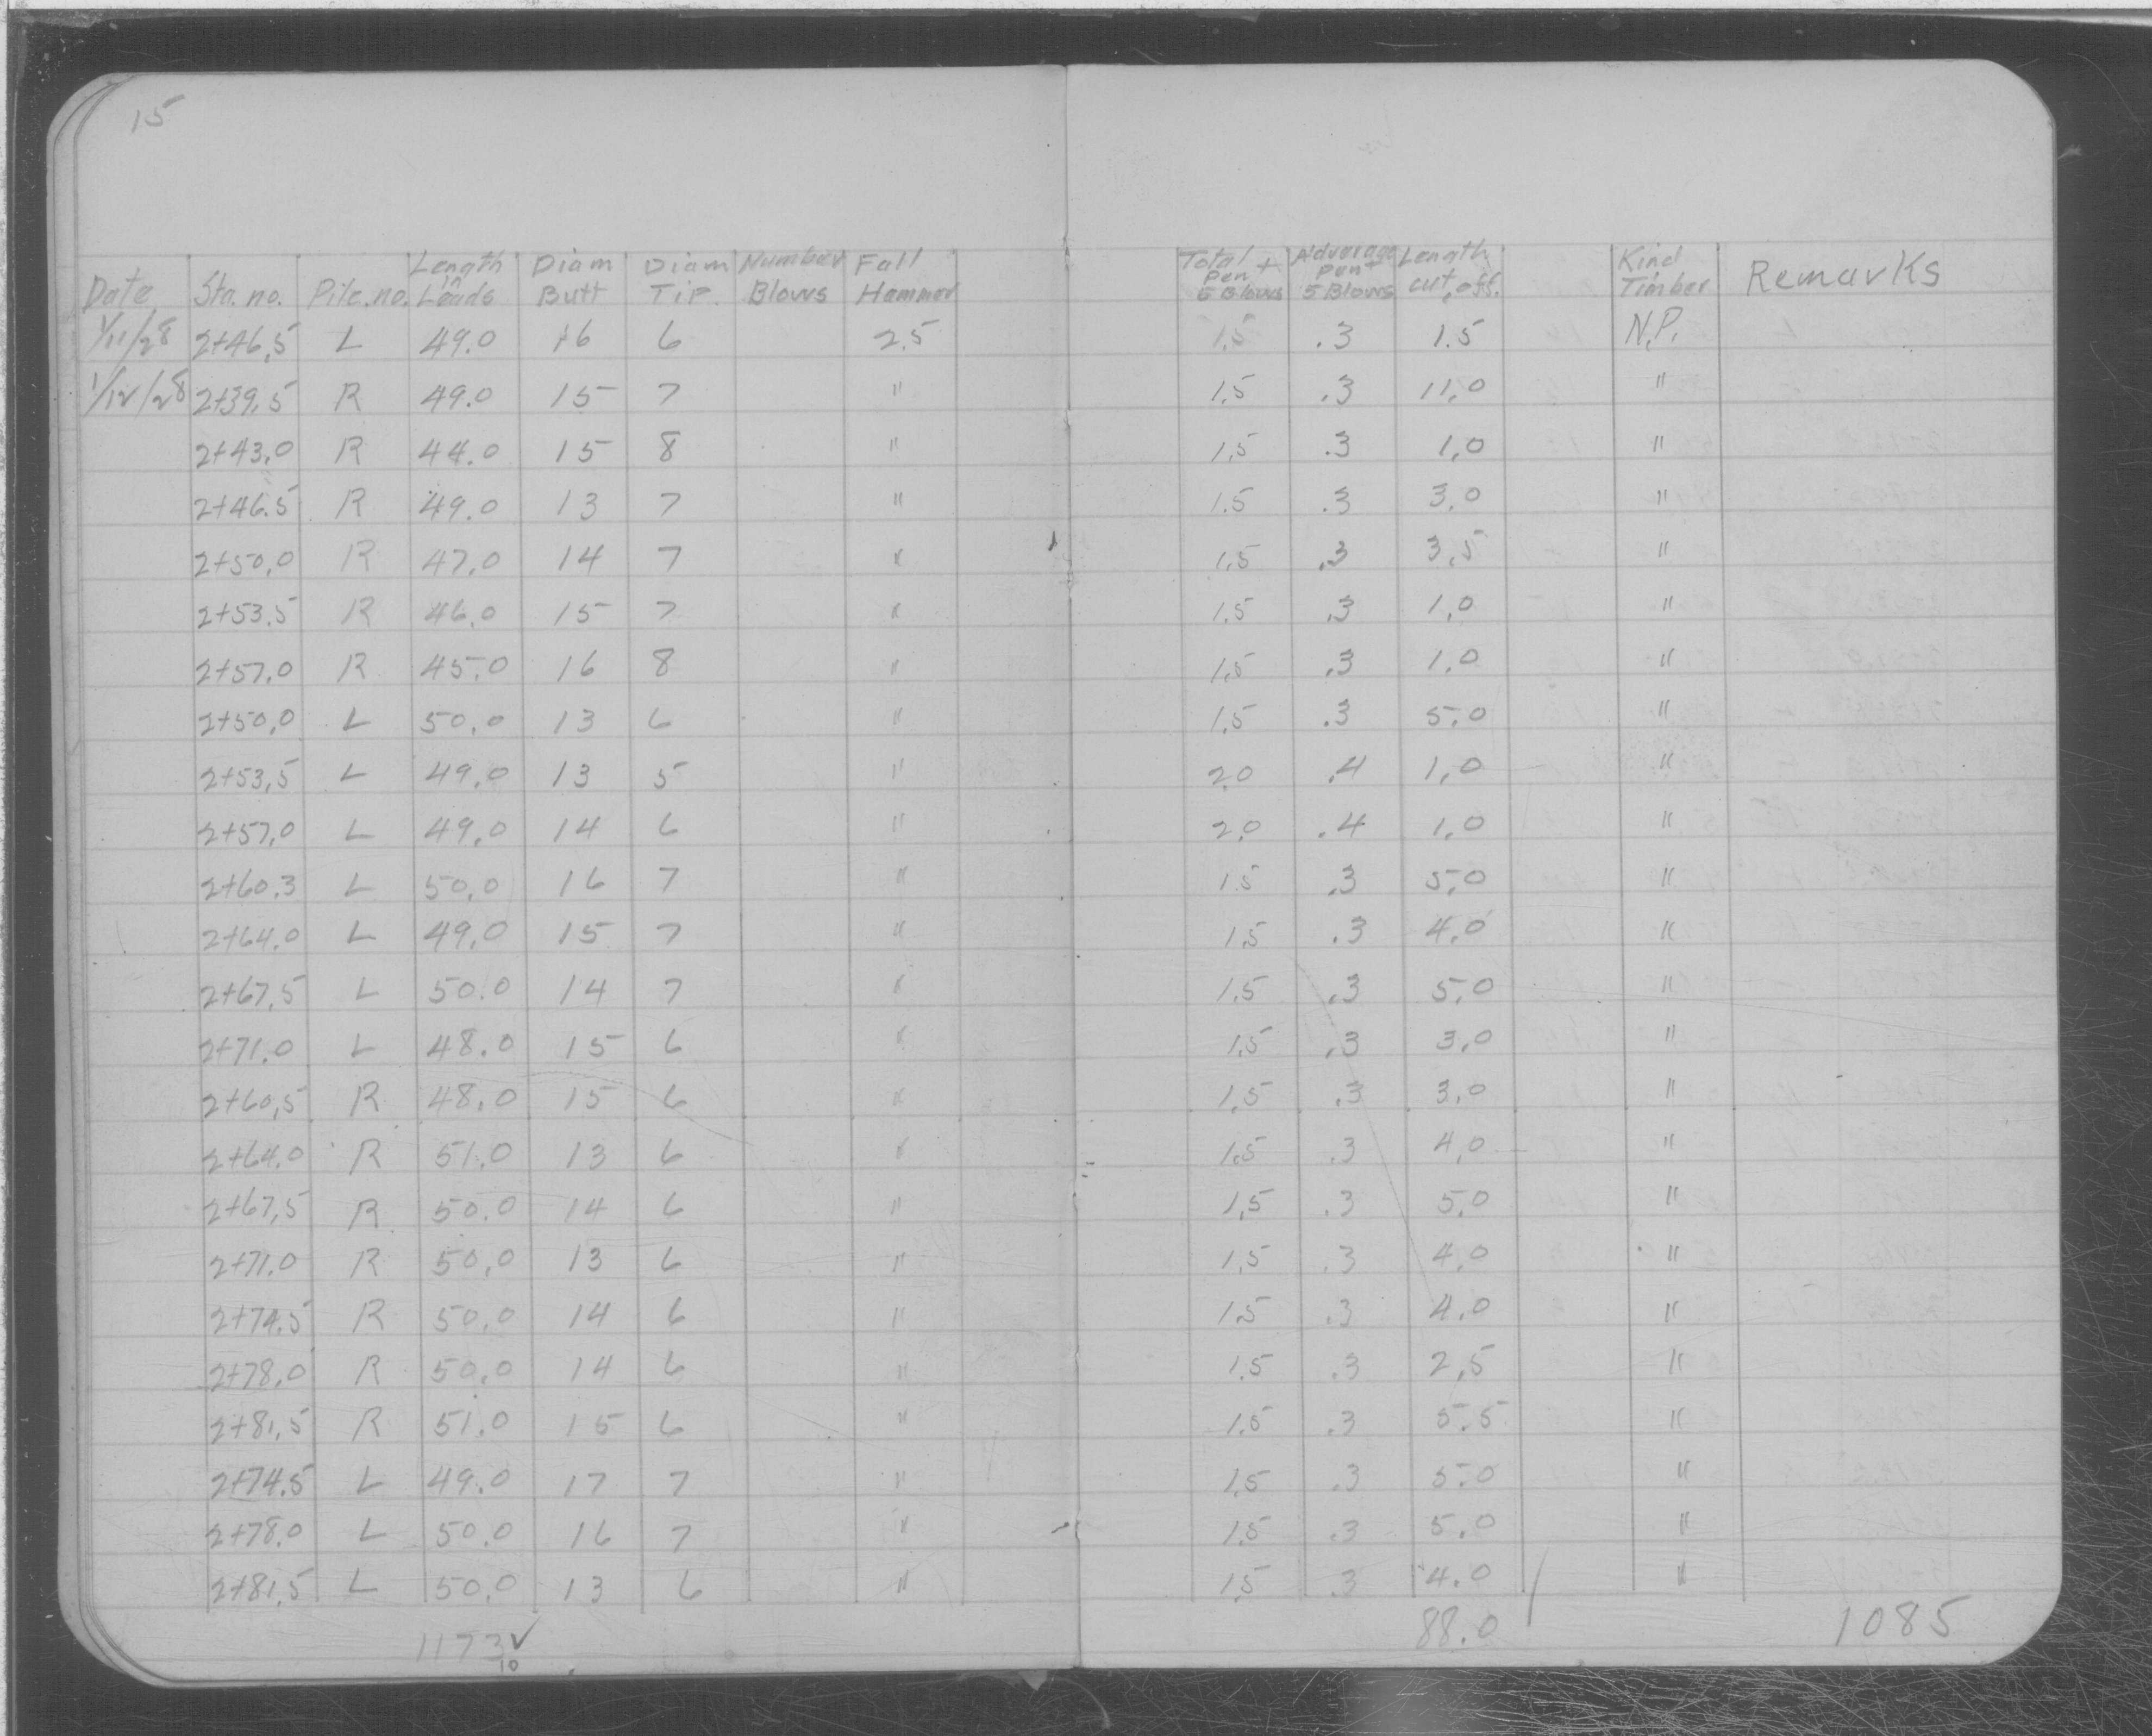 15
Date Sta. no. Pile. no. Length in Leads Diam Butt Diam Tip. Number Blows Fall Hammer Total Pen+ 5 Blows Adverage Pen+ 5 Blows Length cut off. Kind Timber Remarks
1/11/28 2+46,5 L 49.0 16 6 2.5 1.5 .3 1.5 N.P.
1/12/28 2+39,5 R 49.0 15 7 " 1.5 .3 11,0 "
2+43,0 R 44.0 15 8 " 1.5 .3 1,0 "
2+46.5 R 49.0 13 7 " 1.5 .3 3,0 "
2+50,0 R 47,0 14 7 " 1.5 .3 3,5 "
2+53.5 R 46,0 15 7 " 1.5 .3 1,0 "
2+57,0 R 45.0 16 8 " 1.5 .3 1,0 "
2+50,0 L 50,0 13 6 " 1.5 .3 5,0 "
2+53,5 L 49,0 13 5 " 2.0 .4 1,0 "
2+57,0 L 49,0 14 6 " 2.0 .4 1,0 "
2+60.3 L 50,0 16 7 " 1.5 .3 5,0 "
2+64.0 L 49,0 15 7 " 1.5 .3 4,0 "
2+67,5 L 50.0 14 7 " 1.5 .3 5,0 "
2+71.0 L 48.0 15 6 " 1.5 .3 3,0 "
2+60,5 R 48,0 15 6 " 1.5 .3 3,0 "
2+64.0 R 51.0 13 6 " 1.5 .3 4,0 "
2+67,5 R 50.0 14 6 " 1,5 .3 5,0 "
2+71.0 R 50,0 13 6 " 1.5 .3 4,0 "
2+74.5 R 50,0 14 6 " 1.5 .3 4.0 "
2+78,0 R 50,0 14 6 " 1.5 .3 2,5 "
2+81,5 R 51.0 15 6 " 1.5 .3 5.5 "
2+74.5 L 49.0 17 7 " 1.5 .3 5.0 "
2+78.0 L 50.0 16 7 " 1.5 .3 5,0 "
2+81,5 L 50,0 13 6 " 1.5 .3 4.0 "
1173 ✓ 10 88.0 1085